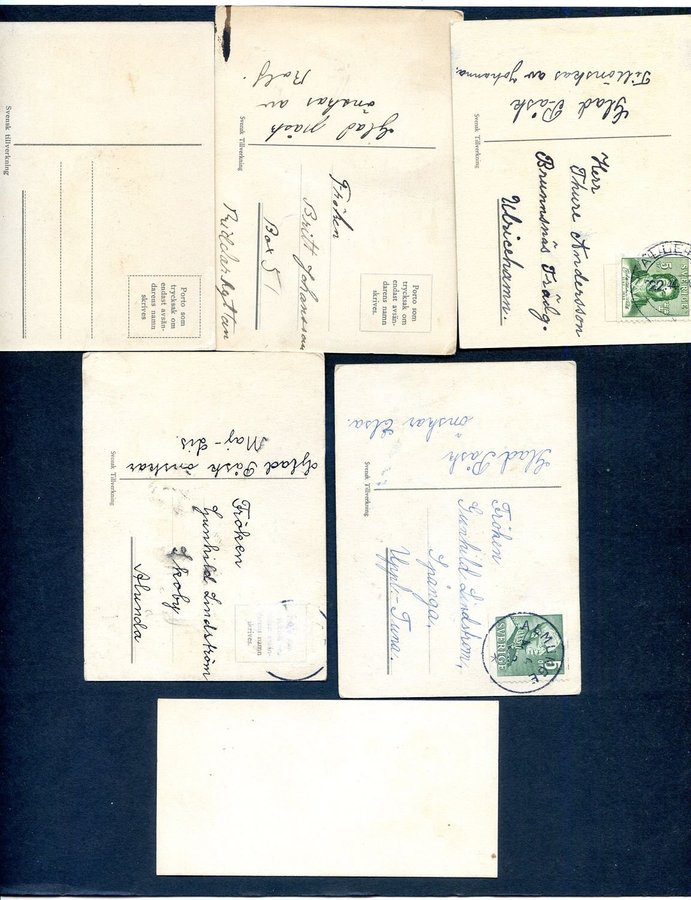 Svensk tillverkning
Porto som
trycksak om
endast avsän-
darens namn
skrives.
Glad påsk
önskas av
Rolf.
Svensk Tillverkning
Fröken
Britt Johansson
Box 51
Riddarhyttan
Porto som
trycksak om
endast avsän-
darens namn
skrives.
Glad Påsk
Tillönskas av Johanna.
Svensk Tillverkning
Herr
Thure Andersson
Brunnsnäs Trädg.
Ulricehamn.
SVERIGE
5
Glad Påsk önskar
Maj-Lis.
Svensk Tillverkning
Fröken
Gunhild Lindström
Skoby
Alunda
skrives.
Glad Påsk
önskar Elsa.
Svensk Tillverkning
Fröken
Gunhild Lindström,
Spånga.
Uppl-Tuna.
SVERIGE
5